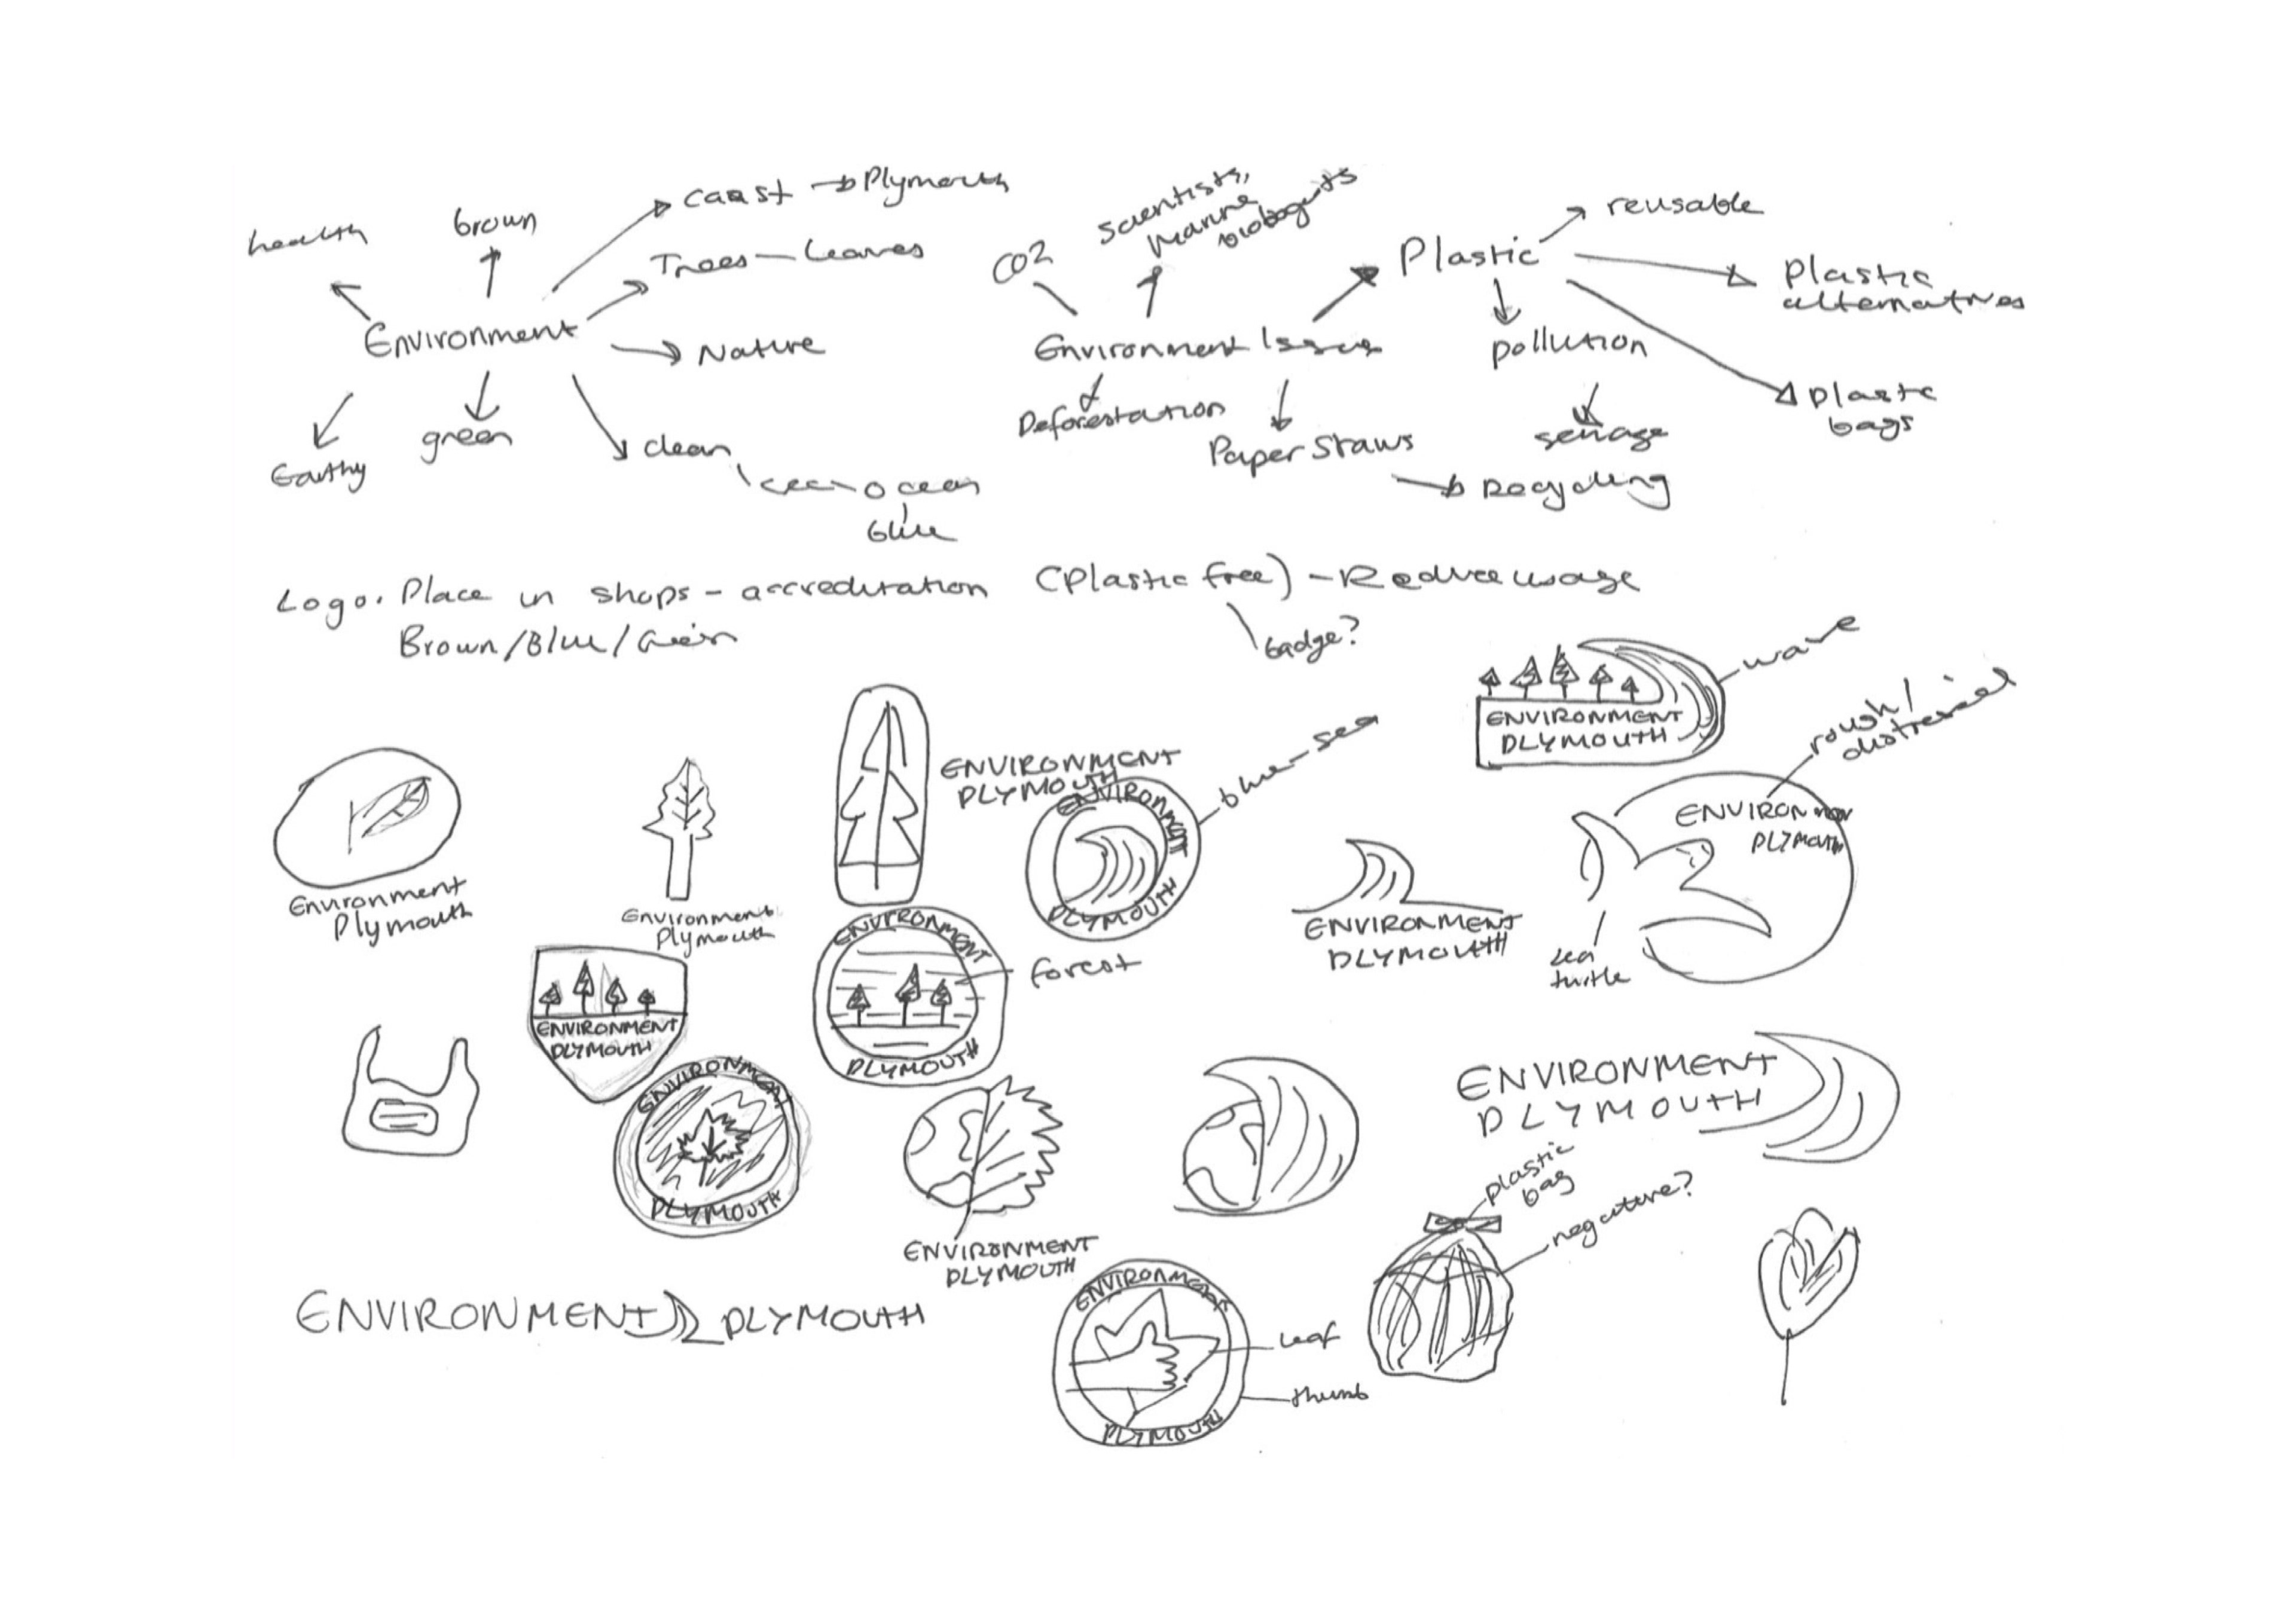 health
brown
Coast → Plymouth
Trees — Leaves
Environment
Nature
Earthy
green
clean
ocean
blue
CO2
Scientists,
Marine
biologists
Plastic
reusable
Plastic
alternatives
Environment Issues
pollution
Deforestation
Paper Straws
sewage
Plastic
bags
Recycling
Logo. Place in shops - accreditation (Plastic free) - Reduce usage
Brown/Blue/Green
badge?
wave
ENVIRONMENT
PLYMOUTH
rough/
distressed
Environment
Plymouth
Environment
Plymouth
ENVIRONMENT
PLYMOUTH
ENVIRONMENT
PLYMOUTH
blue-sea
ENVIRONMENT
PLYMOUTH
ENVIRONMENT
PLYMOUTH
sea
turtle
ENVIRONMENT
PLYMOUTH
ENVIRONMENT
PLYMOUTH
forest
ENVIRONMENT
PLYMOUTH
ENVIRONMENT
PLYMOUTH
ENVIRONMENT
PLYMOUTH
plastic
bag
negative?
ENVIRONMENT PLYMOUTH
ENVIRONMENT
PLYMOUTH
Leaf
thumb